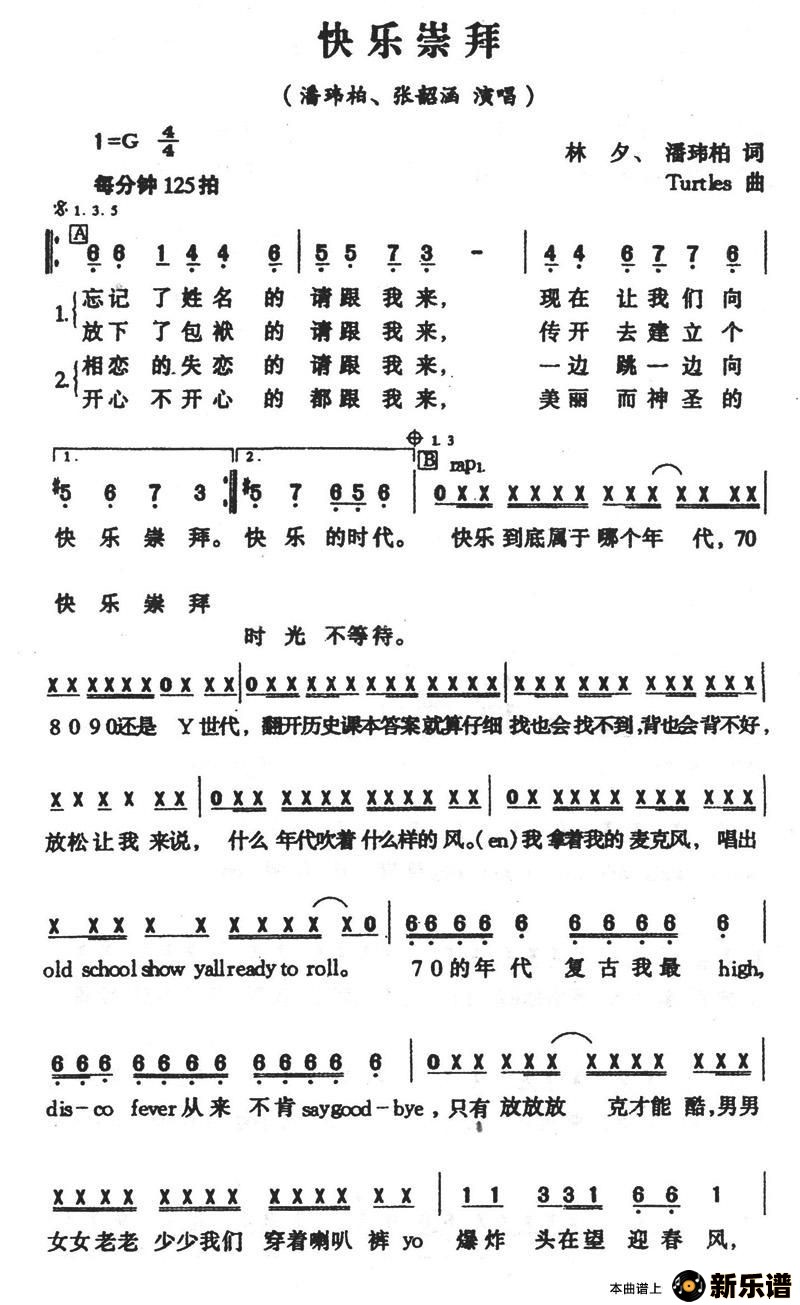 快乐崇拜
(潘玮柏、张韶涵 演唱)
1=G 4/4
林 夕、 潘玮柏 词
每分钟 125拍
Turtles 曲
1. 3. 5
A
6 6 1 4 4 6 | 5 5 7 3 - | 4 4 6 7 7 6 |
1. 忘记 了姓名 的请跟 我来, 现在 让我们向
放下 了包袱 的请跟 我来, 传开 去建立个
2. 相恋 的失恋 的请跟 我来, 一边 跳一边向
开心 不开心 的都跟 我来, 美丽 而神圣的
1. 2. 1. 3
B rap1.
#5 6 7 3 :| #5 7 6 5 6 | 0 X X X X X X X X X X X X X
快 乐 崇 拜。 快 乐 的时代。 快乐 到底属于 哪个年 代, 70
快 乐 崇 拜
时 光 不等待。
X X X X X X 0 X X X | 0 X X X X X X X X X X X X X X | X X X X X X X X X X X X X X |
8 0 9 0还是 Y 世代, 翻开历史课本答案就算仔细 找也会 找不到,背也会背不好,
X X X X X X | 0 X X X X X X X X X X X X | 0 X X X X X X X X X X X X X |
放松让我 来说, 什么 年代吹着 什么样的 风。(en)我 拿着我的 麦克风, 唱出
X X X X X X X X X X X X 0 | 6 6 6 6 6 6 6 6 6 6 6 |
old school show yall ready to roll。 70的年代 复古我最 high,
6 6 6 6 6 6 6 6 6 6 6 6 | 0 X X X X X X X X X X X X X |
dis-co fever从来 不肯 saygood-bye, 只有 放放放 克才能 酷,男男
X X X X X X X X X X X X X X | 1 1 3 3 1 6 6 1 |
女女老老 少少我们 穿着喇叭 裤 yo 爆炸 头在望 迎春 风,
本曲谱上 新乐谱